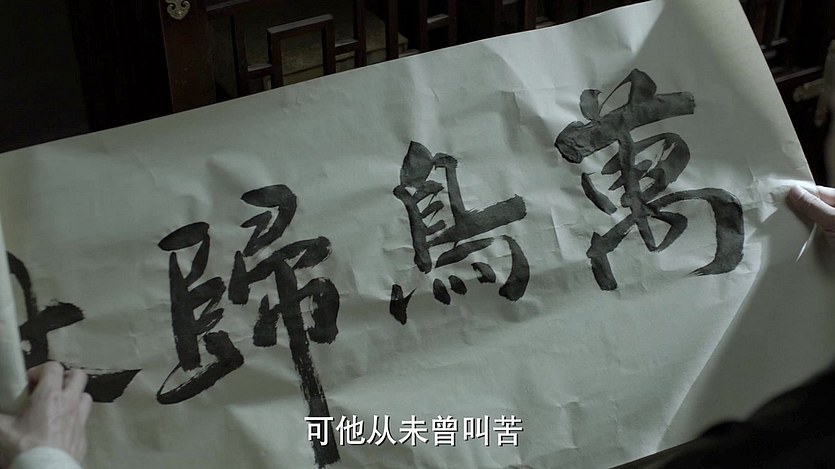 萬鳥歸
可他从未曾叫苦